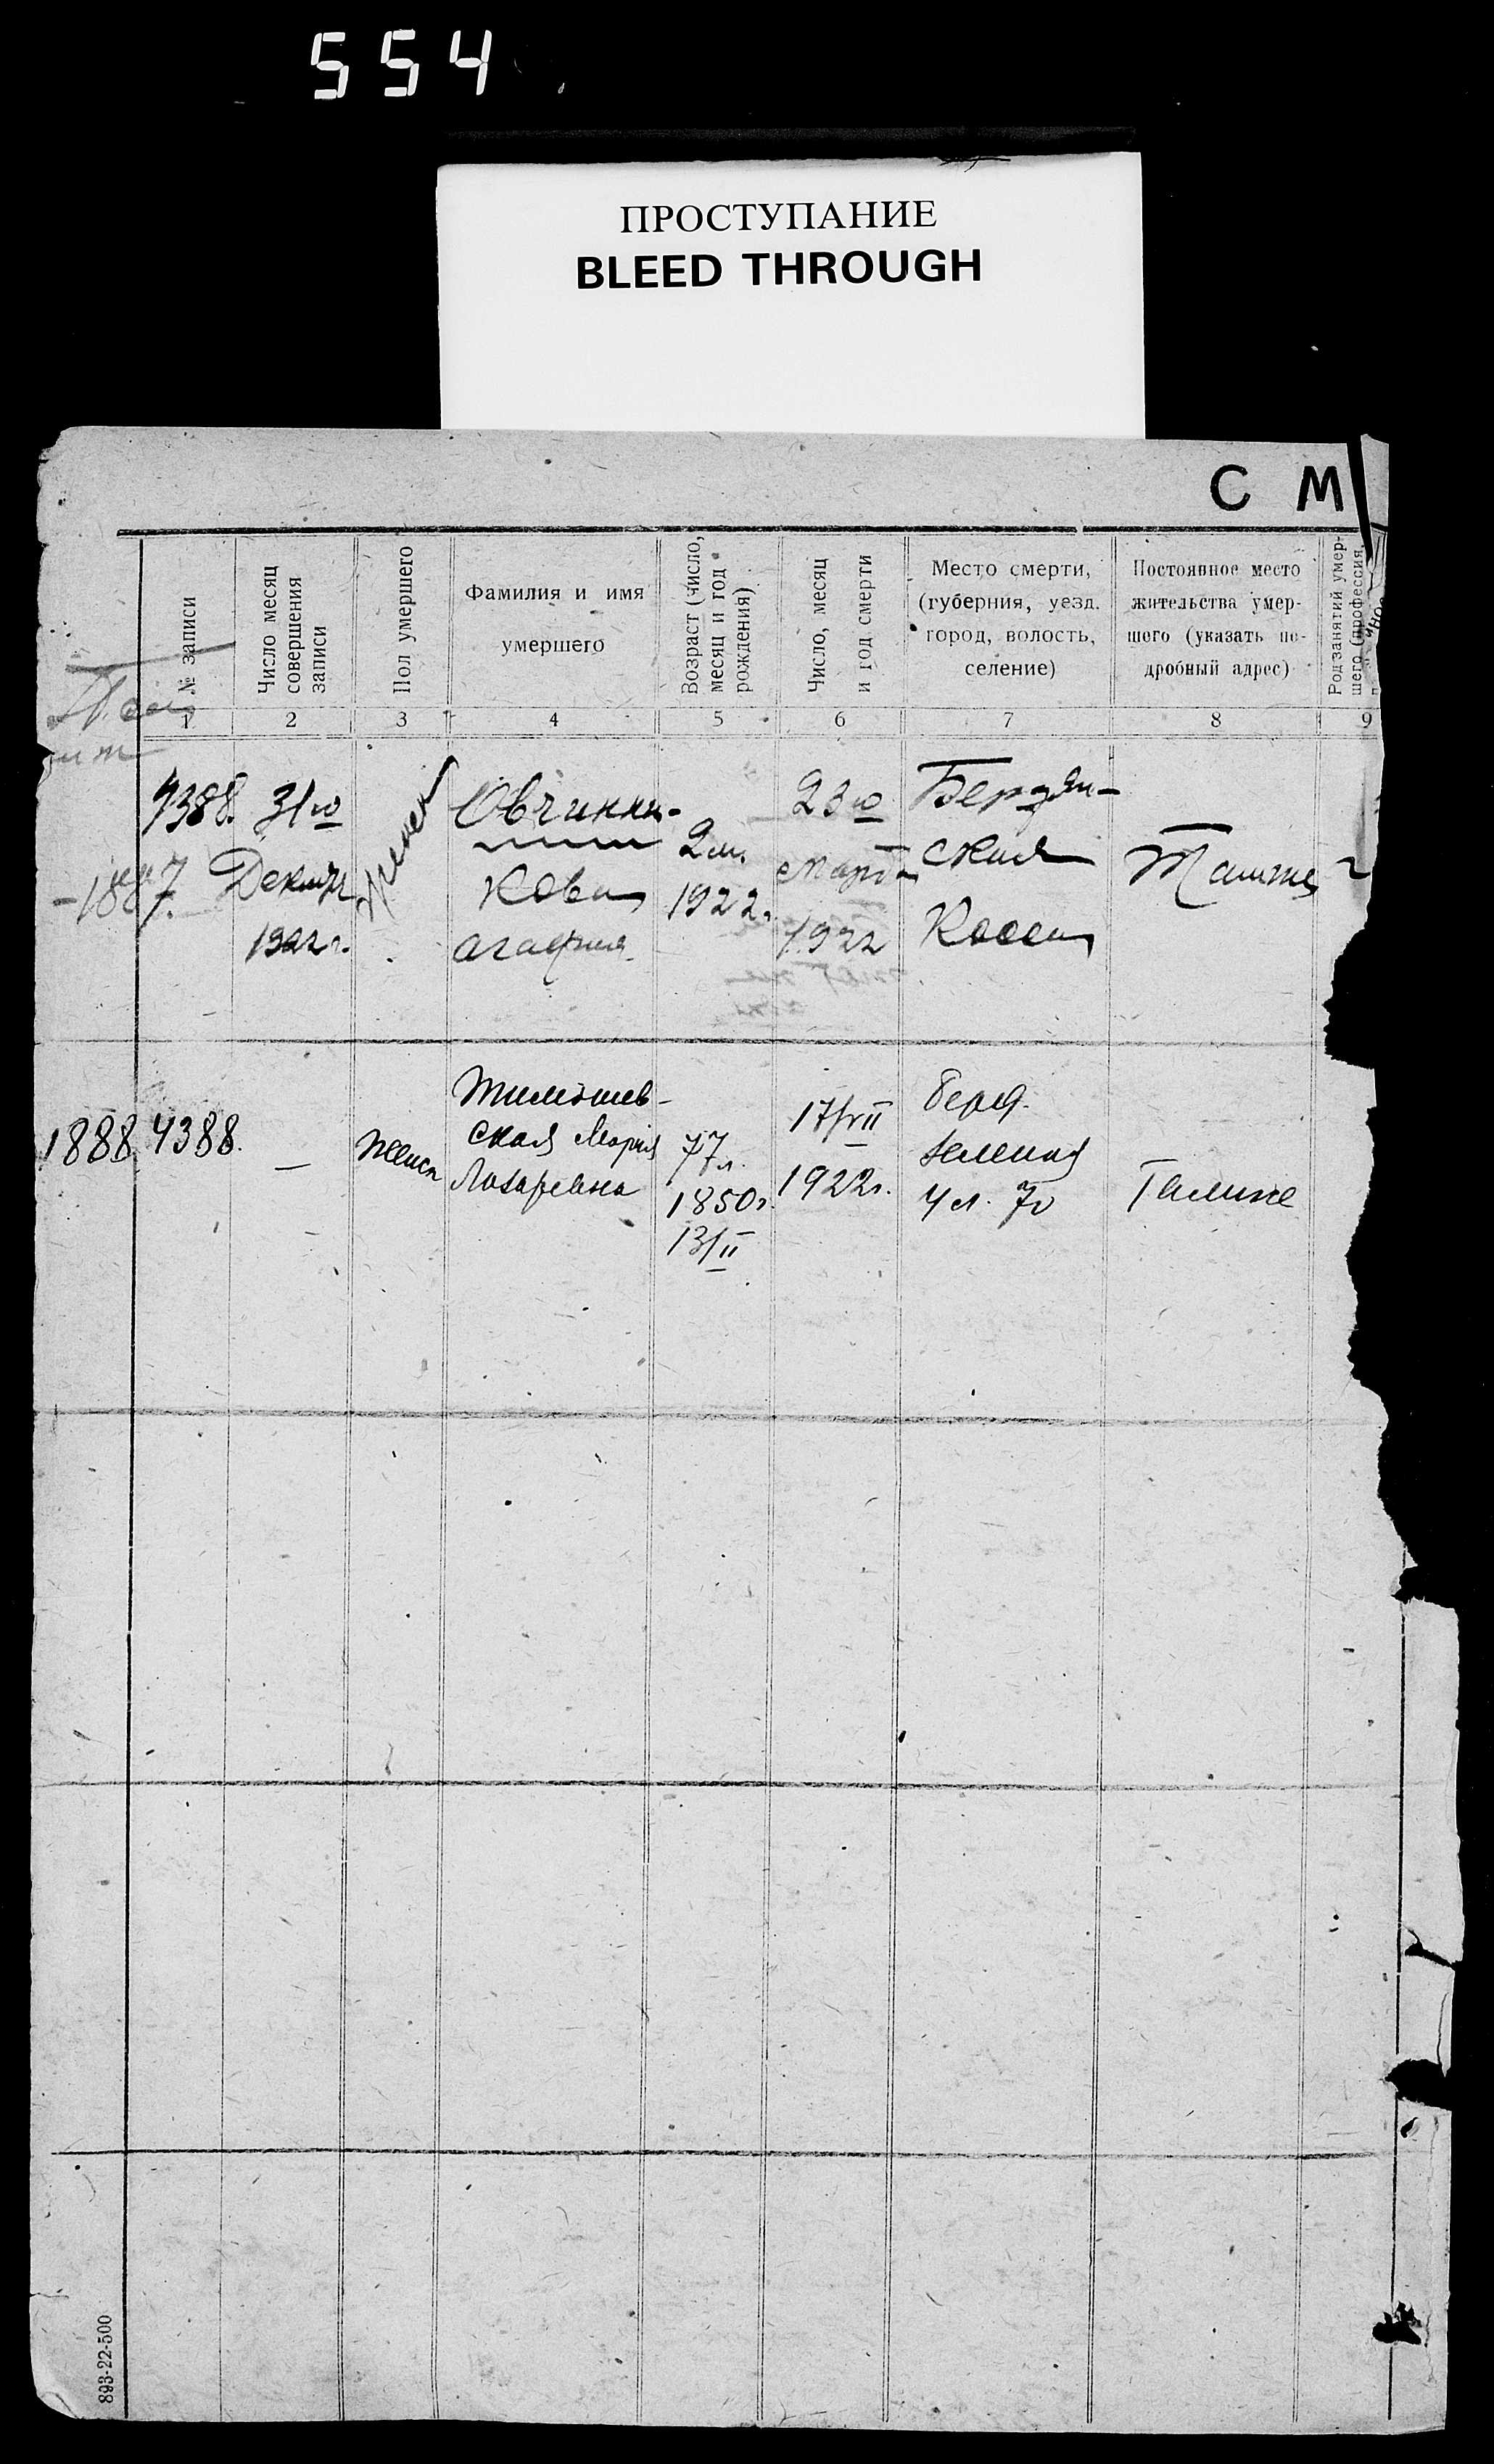 554
ПРОСТУПАНИЕ
BLEED THROUGH
С М
№ записи
Число месяц
совершения
записи
Пол умершего
Фамилия и имя
умершего
Возраст (число,
месяц и год
рождения)
Число, месяц
и год смерти
Место смерти,
(губерния, уезд.
город, волость,
селение)
Постоянное место
жительства умер-
шего (указать по-
дробный адрес)
Род занятий умер-
шего (профессия,
1 2 3 4 5 6 7 8 9
4388.
1887.
31го
1922 г.
женск
Овчинни-
кова
Агафия
2 м.
1922 г.
23го
Марта
1922
Бердян-
ская
Косса
Там же
1888
4388.
—
женск
ская Мария
Лазаревна
77 л.
1850 г.
13/II
17/VII
1922 г.
Берд.
Там же
893-22-500